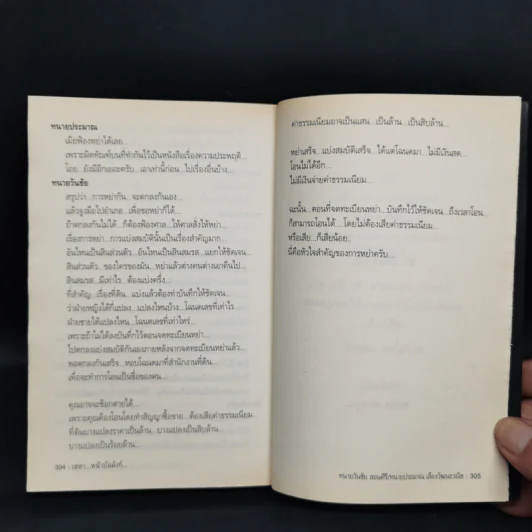 ทนายประมาณ
เมียฟ้องหย่าได้เลย...
เพราะผิดทัณฑ์บนที่ทำกันไว้เป็นหนังสือเรื่องความประพฤติ...
โอย...ยังมีอีกเยอะครับ...เอาเท่านี้ก่อน...ไปเรื่องอื่นบ้าง...
ทนายวันชัย
สรุปว่า...การหย่ากัน...จะตกลงกันเอง...
แล้วจูงมือไปอำเภอ...เพื่อขอหย่าก็ได้...
ถ้าตกลงกันไม่ได้...ก็ต้องฟ้องศาล...ให้ศาลสั่งให้หย่า...
เรื่องการหย่า...การแบ่งสมบัตินั้นเป็นเรื่องสำคัญมาก...
อันไหนเป็นสินส่วนตัว...อันไหนเป็นสินสมรส...แยกให้ชัดเจน...
สินส่วนตัว...ของใครของมัน...หย่าแล้วต่างคนต่างเอาคืนไป...
สินสมรส...มีเท่าไร...ต้องแบ่งครึ่ง...
ที่สำคัญ...เรื่องที่ดิน...แบ่งแล้วต้องทำบันทึกให้ชัดเจน...
ว่าฝ่ายหญิงได้กี่แปลง...แปลงไหนบ้าง...โฉนดเลขที่เท่าไร
ฝ่ายชายได้แปลงไหน...โฉนดเลขที่เท่าไหร่...
เพราะถ้าไม่ได้ลงบันทึกไว้ตอนจดทะเบียนหย่า...
ไปตกลงแบ่งสมบัติกันเองภายหลังจากจดทะเบียนหย่าแล้ว...
พอตกลงกันเสร็จ...หอบโฉนดมาที่สำนักงานที่ดิน...
เพื่อจะทำการโอนเป็นชื่อของตน...
คุณอาจจะช็อกตายได้...
เพราะคุณต้องโอนโดยทำสัญญาซื้อขาย...ต้องเสียค่าธรรมเนียม
ที่ดินบางแปลงราคาเป็นล้าน...บางแปลงเป็นสิบล้าน...
บางแปลงเป็นร้อยล้าน...
304 : เสลา...หน้าบัลลังก์...
ค่าธรรมเนียมอาจเป็นแสน...เป็นล้าน...เป็นสิบล้าน...
หย่าเสร็จ...แบ่งสมบัติเสร็จ...ได้แต่โฉนดมา...ไม่มีเงินสด...
โอนไม่ได้อีก...
ไม่มีเงินจ่ายค่าธรรมเนียม...
ฉะนั้น...ตอนที่จดทะเบียนหย่า...บันทึกไว้ให้ชัดเจน...ถึงเวลาโอน...
ก็สามารถโอนได้...โดยไม่ต้องเสียค่าธรรมเนียม...
หรือเสีย...ก็เสียน้อย...
นี่คือหัวใจสำคัญของการหย่าครับ...
ทนายวันชัย สอนศิริ/ทนายประมาณ เลืองวัฒนะวณิช : 305